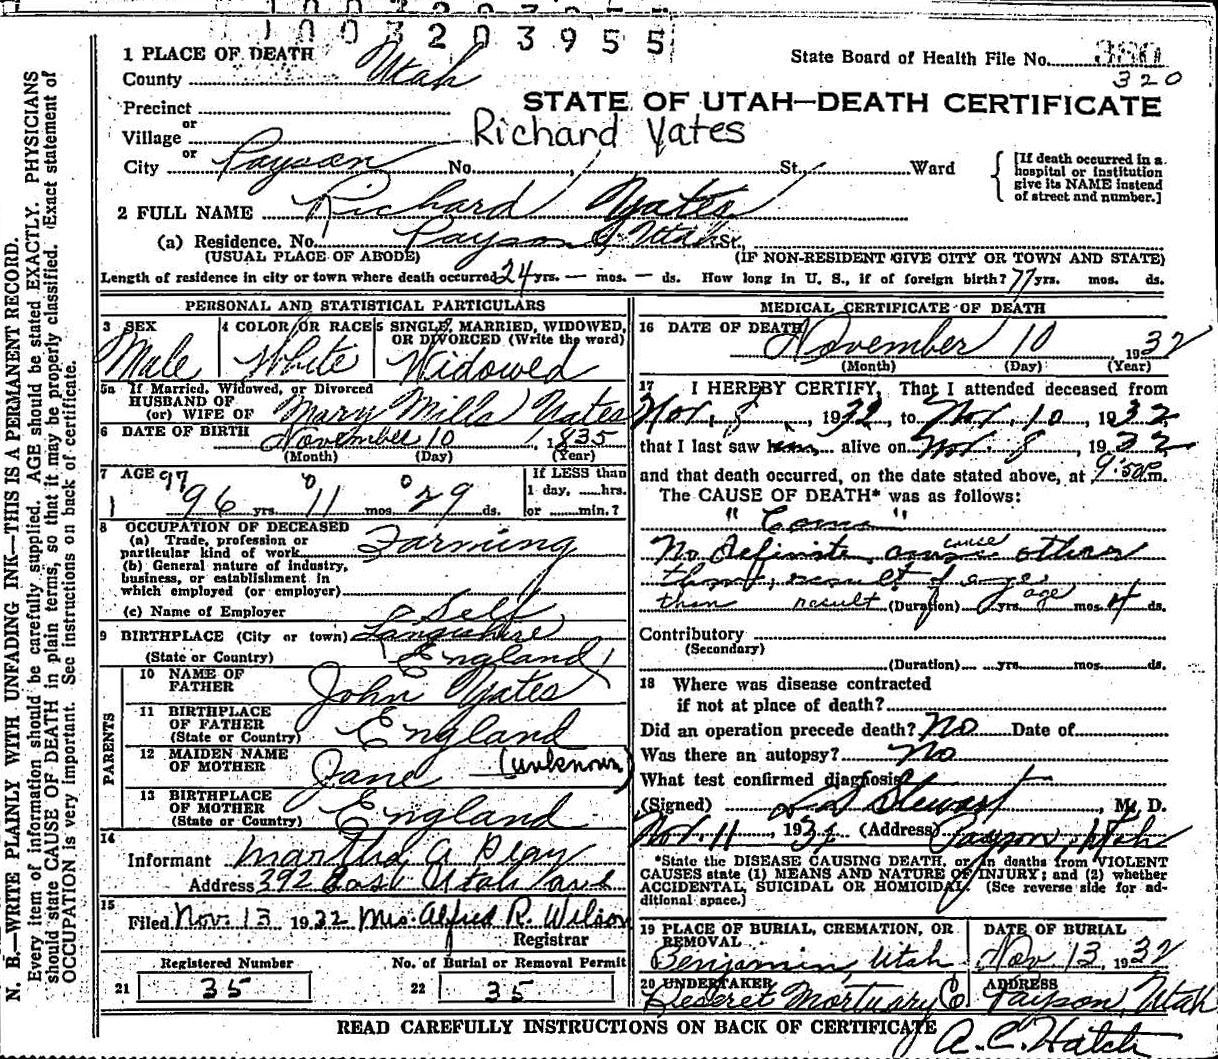 1003203955
1 PLACE OF DEATH
State Board of Health File No. 380
320
County Utah
STATE OF UTAH—DEATH CERTIFICATE
Precinct
or
Village
Richard Yates
or
City Payson No. St. Ward
[If death occurred in a hospital or institution give its NAME instead of street and number.]
2 FULL NAME Richard Yates
(a) Residence. No. Payson Utah St.,
(USUAL PLACE OF ABODE) (IF NON-RESIDENT GIVE CITY OR TOWN AND STATE)
Length of residence in city or town where death occurred 24 yrs. — mos. — ds. How long in U. S., if of foreign birth? 77 yrs. mos. ds.
PERSONAL AND STATISTICAL PARTICULARS
3 SEX
Male
4 COLOR OR RACE
White
5 SINGLE, MARRIED, WIDOWED,
OR DIVORCED (Write the word)
Widowed
5a If Married, Widowed, or Divorced
HUSBAND OF
(or) WIFE OF Mary Mills Yates
6 DATE OF BIRTH November 10, 1835
(Month) (Day) (Year)
7 AGE 97 0 0
96 yrs. 11 mos. 29 ds.
If LESS than
1 day, ......hrs.
or ......min.?
8 OCCUPATION OF DECEASED
(a) Trade, profession or
particular kind of work Farming
(b) General nature of industry,
business, or establishment in
which employed (or employer)
(c) Name of Employer Self
9 BIRTHPLACE (City or town) Langishire
(State or Country) England
PARENTS
10 NAME OF
FATHER John Yates
11 BIRTHPLACE
OF FATHER
(State or Country) England
12 MAIDEN NAME
OF MOTHER Jane (unknown)
13 BIRTHPLACE
OF MOTHER
(State or Country) England
14
Informant Martha A Peay
Address 392 East Utah Ave
15
Filed Nov. 13 1932 Mrs. Alfred R. Wilson
Registrar
Registered Number No. of Burial or Removal Permit
21 35 22 35
MEDICAL CERTIFICATE OF DEATH
16 DATE OF DEATH
November 10, 1932
(Month) (Day) (Year)
17 I HEREBY CERTIFY, That I attended deceased from
Nov. 8 1932, to Nov. 10, 1932,
that I last saw him alive on Nov. 8, 1932
and that death occurred, on the date stated above, at 9:50 P.m.
The CAUSE OF DEATH* was as follows:
" Coma "
No definite cause cause other
than, result of age
than result (Duration) yrs. age mos. 4 ds.
Contributory
(Secondary)
(Duration) yrs. mos. ds.
18 Where was disease contracted
if not at place of death?
Did an operation precede death? No Date of
Was there an autopsy? No
What test confirmed diagnosis
(Signed) Stewart, M. D.
Nov. 11, 1932 (Address) Payson, Utah
*State the DISEASE CAUSING DEATH, or, in deaths from VIOLENT
CAUSES state (1) MEANS AND NATURE OF INJURY; and (2) whether
ACCIDENTAL, SUICIDAL OR HOMICIDAL. (See reverse side for ad-
ditional space.)
19 PLACE OF BURIAL, CREMATION, OR
REMOVAL
Benjamin, Utah
DATE OF BURIAL
Nov. 13, 1932
20 UNDERTAKER
Deseret Mortuary Co
ADDRESS
Payson, Utah
READ CAREFULLY INSTRUCTIONS ON BACK OF CERTIFICATE
A. C. Hatch
N. B.—WRITE PLAINLY WITH UNFADING INK—THIS IS A PERMANENT RECORD.
Every item of information should be carefully supplied. AGE should be stated EXACTLY. PHYSICIANS
should state CAUSE OF DEATH in plain terms, so that it may be properly classified. Exact statement of
OCCUPATION is very important. See instructions on back of certificate.